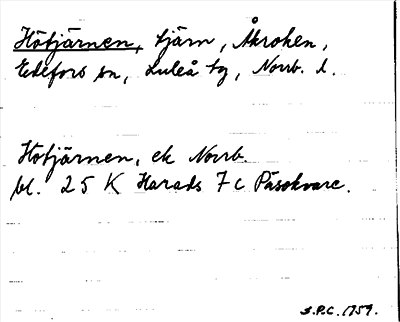 Hötjärnen, tjärn, Åkroken,
Edefors sn, Luleå tg, Norrb. l.
Hötjärnen, ek Norrb.
bl. 25 K Harads 7 c Påsokvare.
S.P.C. 1759.